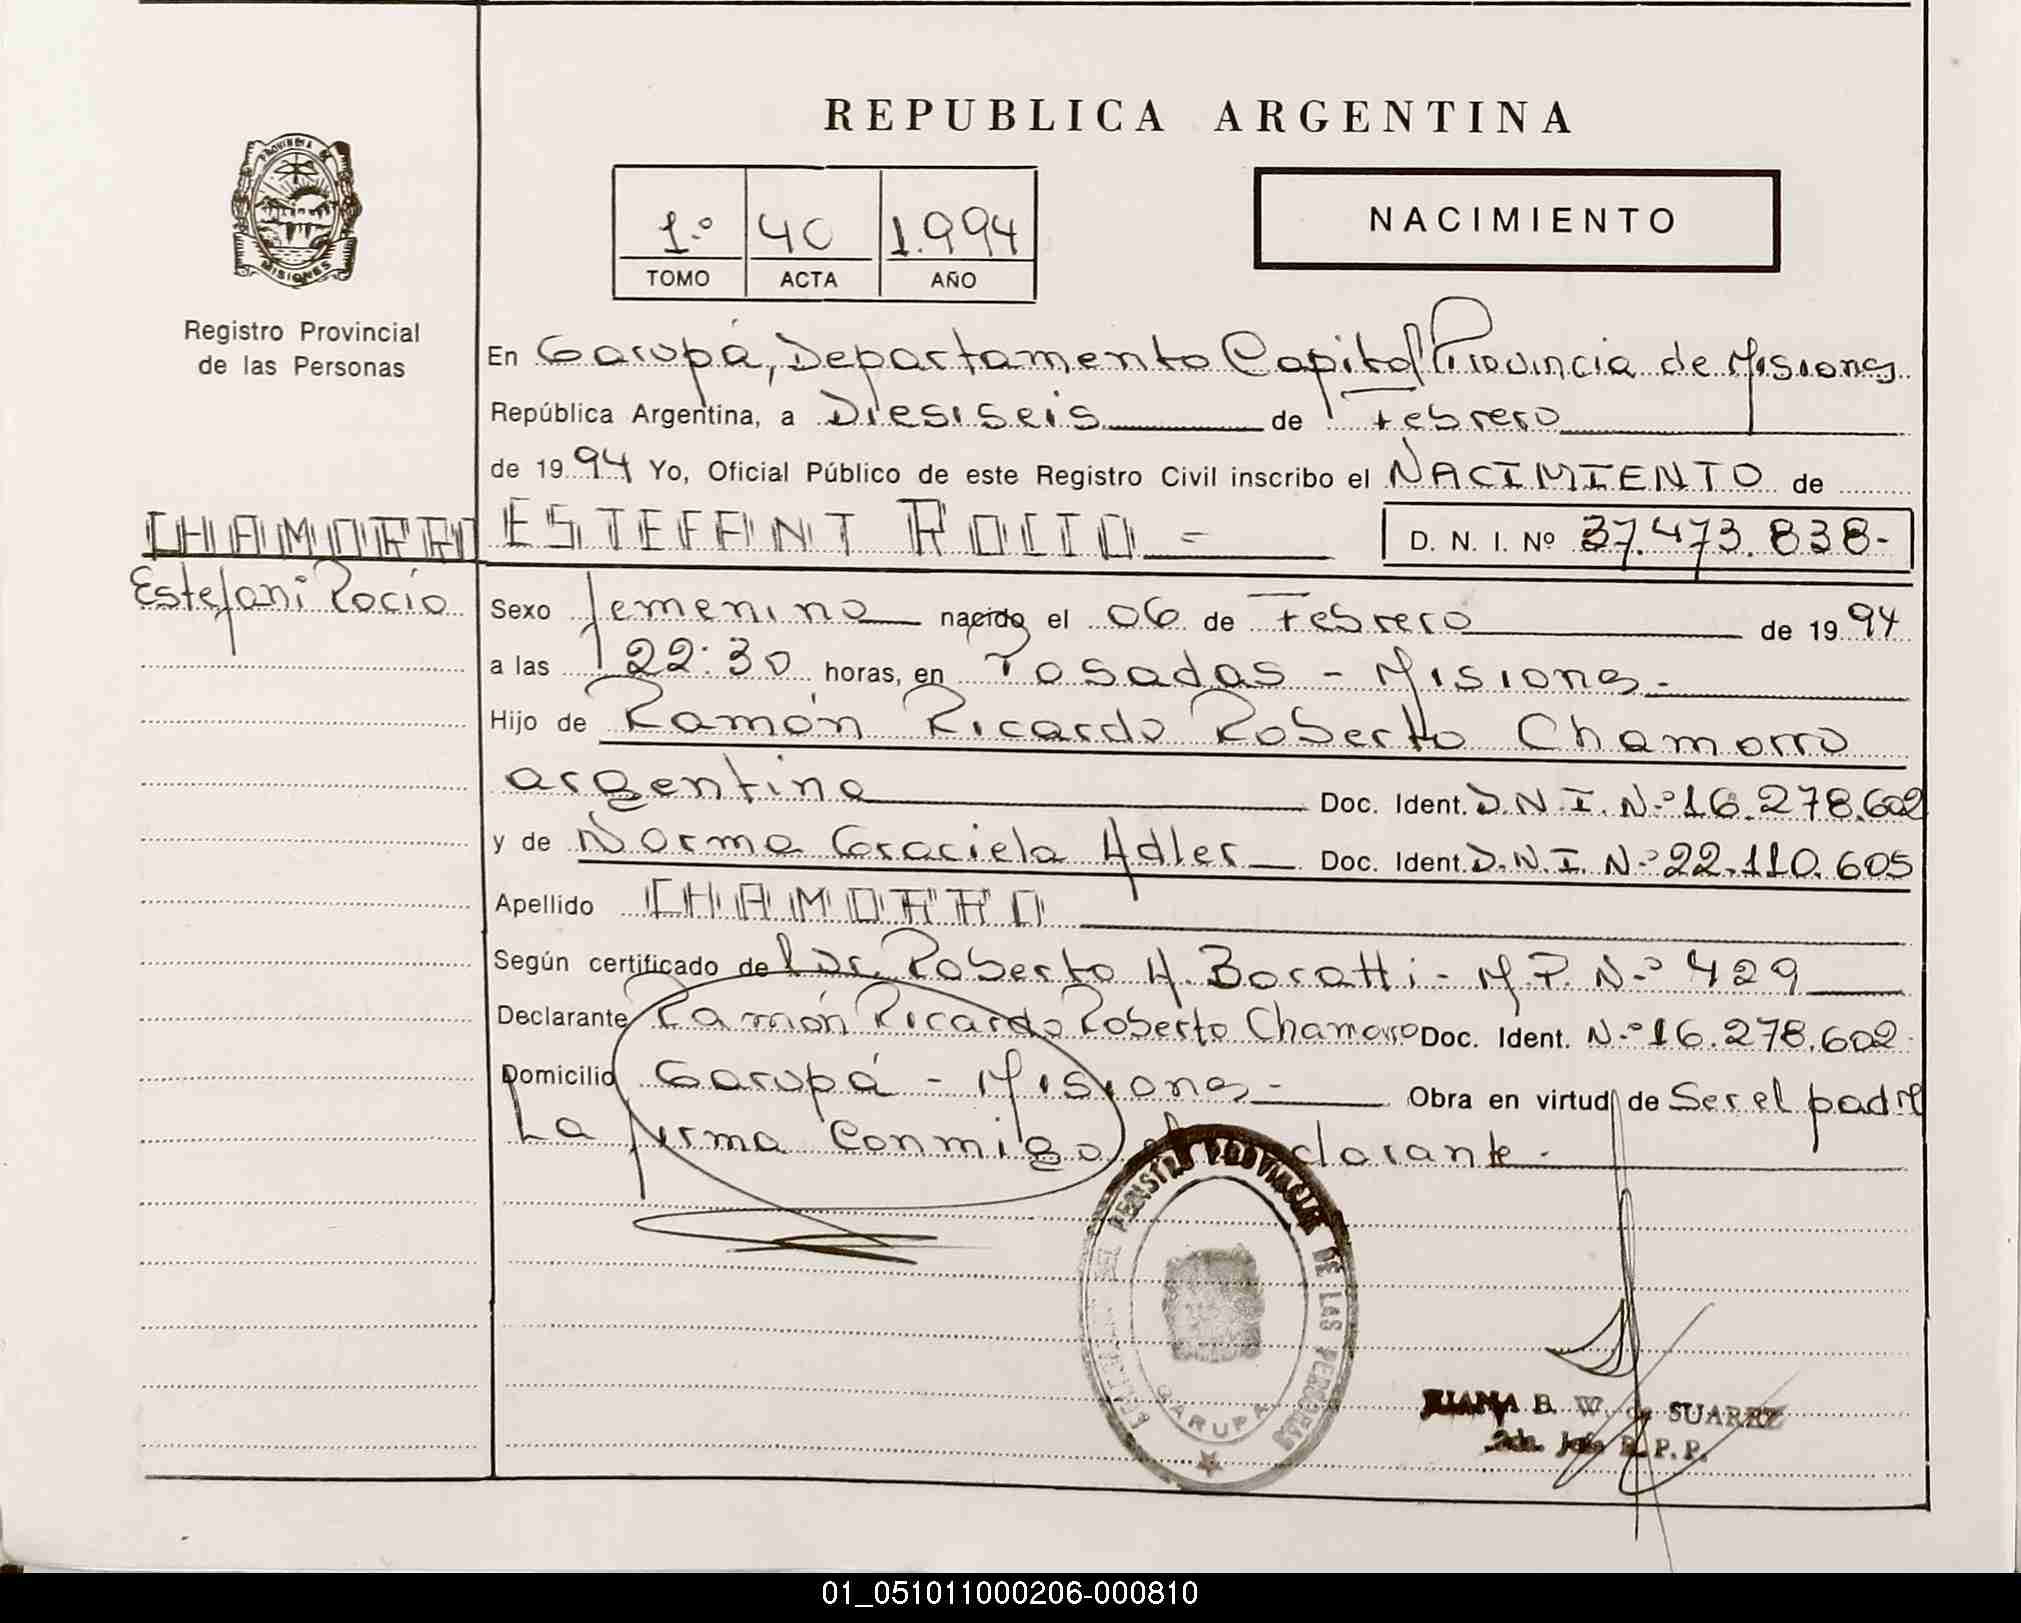 REPUBLICA ARGENTINA
PROVINCIA DE
MISIONES
Registro Provincial
de las Personas
1.º 40 1.994
TOMO ACTA AÑO
NACIMIENTO
En Garupá, Departamento Capital Provincia de Misiones
República Argentina, a Diesiseis de Febrero
de 1994 Yo, Oficial Público de este Registro Civil inscribo el NACIMIENTO de
CHAMORRO ESTEFANI ROCIO - D. N. I. Nº 37.473.838-
Estefani Rocío
Sexo femenino nacido el 06 de Febrero de 1994
a las 22:30 horas, en Posadas - Misiones -
Hijo de Ramón Ricardo Roberto Chamorro
argentino Doc. Ident. D.N.I.N.º 16.278.602
y de Norma Graciela Adler Doc. Ident. D.N.I.N.º 22.110.605
Apellido CHAMORRO
Según certificado de l Dr. Roberto A. Boratti - M.P. N.º 429
Declarante Ramón Ricardo Roberto Chamorro Doc. Ident. N.º 16.278.602
Domicilio Garupá - Misiones - Obra en virtud de Ser el padre
La firma conmigo el declarante.
REGISTRO PROVINCIAL DE LAS PERSONAS
GARUPA
JUANA B. W. de SUAREZ
2da. Jefe R.P.P.
01_051011000206-000810